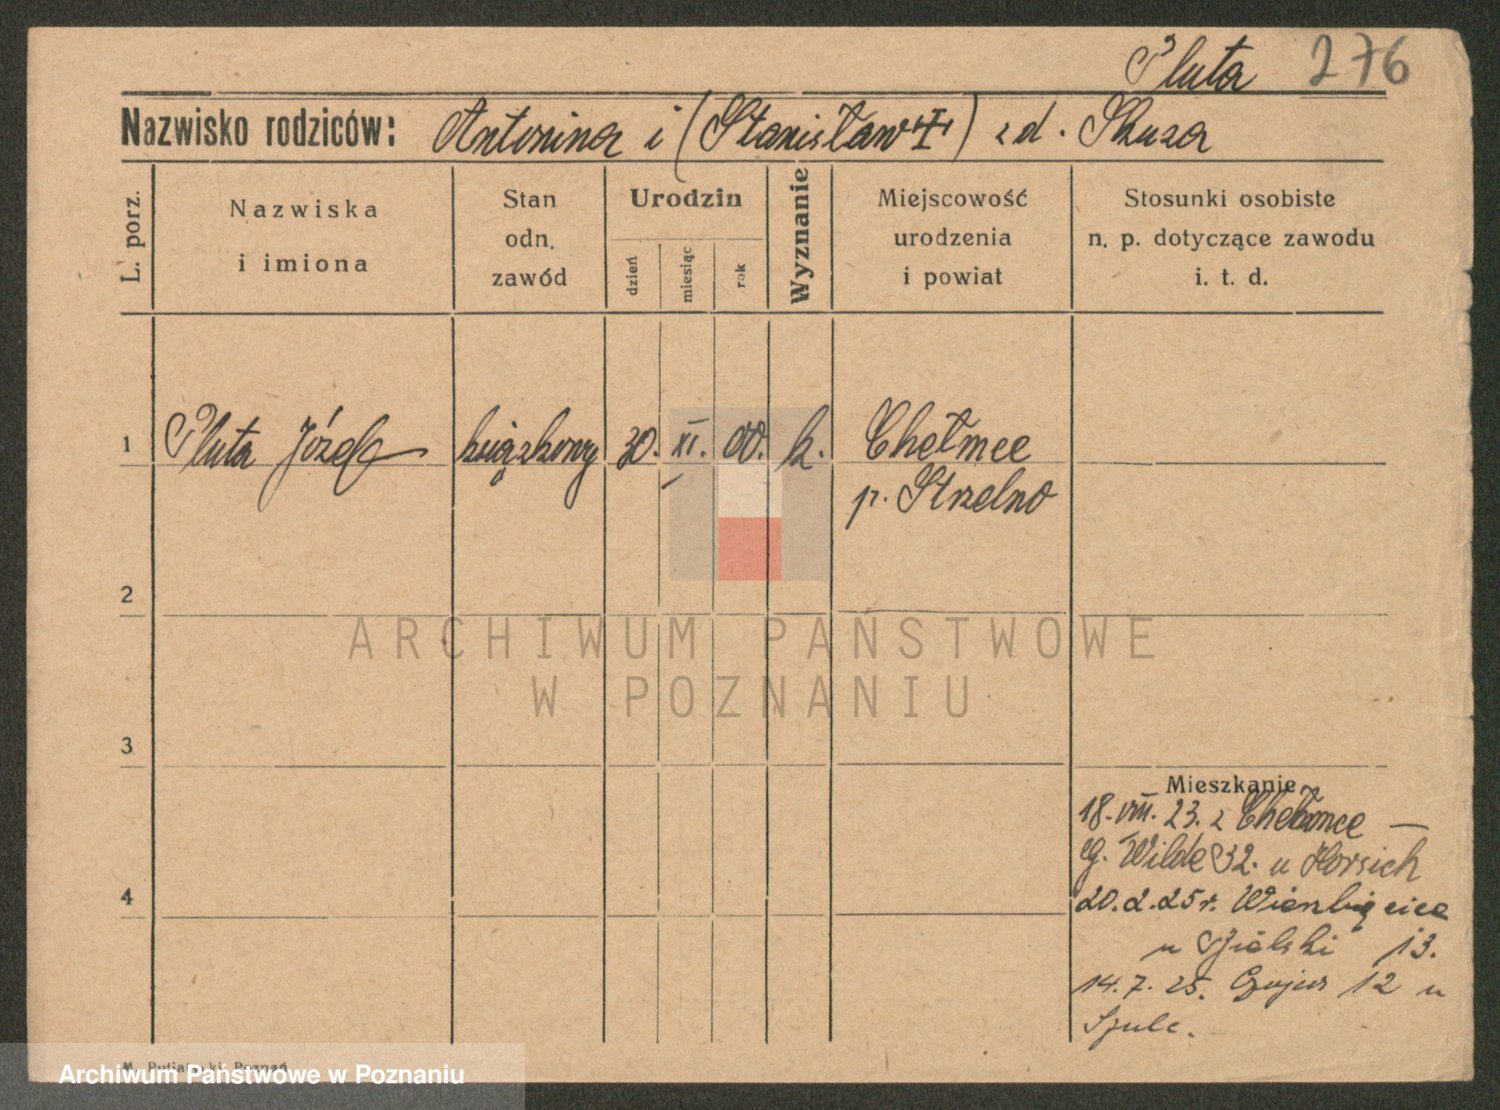 Pluta 276
Nazwisko rodziców: Antonina i (Stanisław) z d. Skuza
L. porz.
Nazwiska
i imiona
Stan
odn.
zawód
Urodzin
dzień
miesiąc
rok
Wyznanie
Miejscowość
urodzenia
i powiat
Stosunki osobiste
n. p. dotyczące zawodu
i. t. d.
1 Pluta Józef książkowy 30. XI. 00. k. Chełmce
p. Strzelno
2
3
4
Mieszkanie
18. VIII. 23. z Chełmce —
Wilde 32. u Horsich
20.2.25 r. Wierzbięcice
u Bielski 13.
14.7.25. 12 u
Szulc.
ARCHIWUM PAŃSTWOWE
W POZNANIU
Poznań
Archiwum Państwowe w Poznaniu